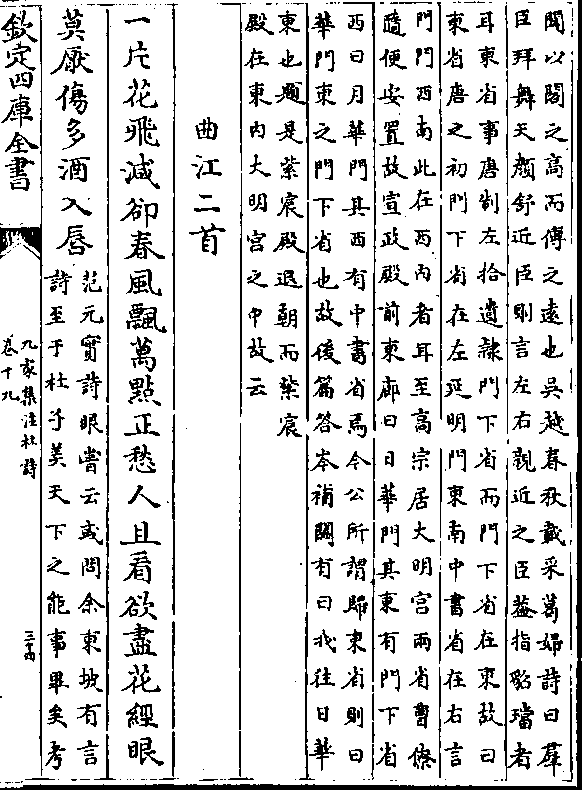 聞以閽之高而傳之遠也吳越春秋載采葛婦詩曰羣
臣拜舞天顏舒近臣則言左右親近之臣蓋指貂璫者
耳東省事唐制左拾遺隷門下省而門下省在東故曰
東省唐之初門下省在左延明門東南中書省在右言
門門西南此在西内者耳至高宗居大明宫兩省曹僚
隨便安置故宣政殿前東廊曰日華門其東有門下省
西曰月華門其西有中書省焉今公所謂歸東省則曰
華門東之門下省也故後篇答岑補闕有曰我往日華
東也題是紫宸殿退朝而紫宸
殿在東内大明宫之中故云
曲江二首
一片花飛減卻春風飄萬點正愁人且看欲盡花經眼
莫厭傷多酒入唇
范元實詩眼嘗云或問余東坡有言
詩至于杜子美天下之能事畢矣考
欽定四庫全書
九家集注杜詩
卷十九